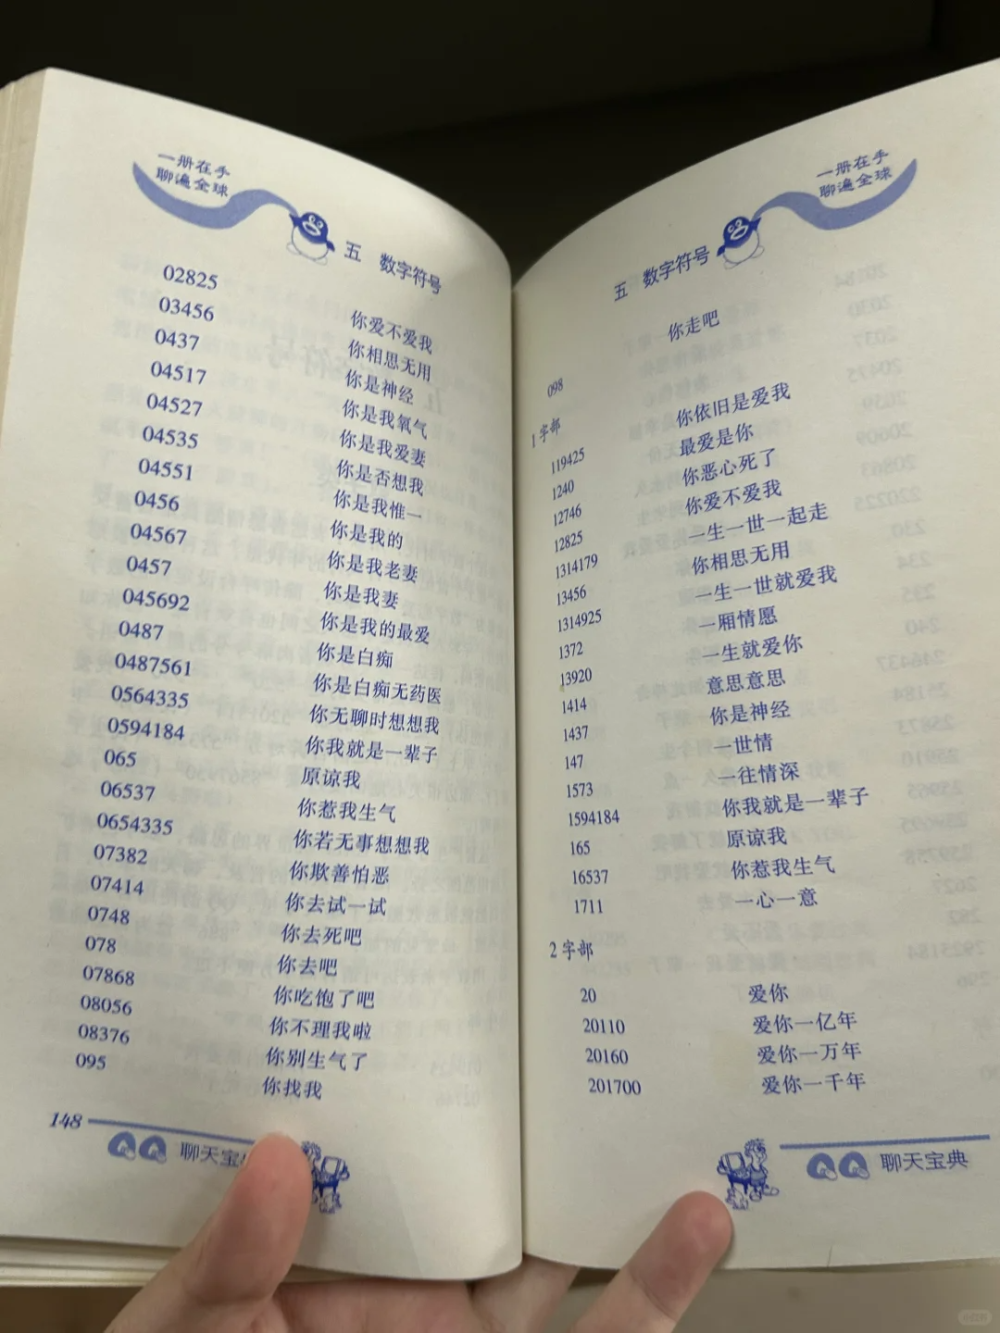 一册在手
聊遍全球
五 数字符号
02825 你爱不爱我
03456 你相思无用
0437 你是神经
04517 你是我氧气
04527 你是我爱妻
04535 你是否想我
04551 你是惟一
0456 你是我的
04567 你是我老妻
0457 你是我妻
045692 你是我的最爱
0487 你是白痴
0487561 你是白痴无药医
0564335 你无聊时想想我
0594184 你我就是一辈子
065 原谅我
06537 你惹我生气
0654335 你若无事想想我
07382 你欺善怕恶
07414 你去试一试
0748 你去死吧
078 你去吧
07868 你吃饱了吧
08056 你不理我啦
08376 你别生气了
095 你找我
148
QQ 聊天宝
一册在手
聊遍全球
五 数字符号
098 你走吧
1字部
119425 你依旧是爱我
1240 最爱是你
12746 你恶心死了
12825 你爱不爱我
1314179 一生一世一起走
13456 你相思无用
1314925 一生一世就爱我
1372 一厢情愿
13920 一生就爱你
1414 意思意思
1437 你是神经
147 一世情
1573 一往情深
1594184 你我就是一辈子
165 原谅我
16537 你惹我生气
1711 一心一意
2字部
20 爱你
20110 爱你一亿年
20160 爱你一万年
201700 爱你一千年
QQ 聊天宝典